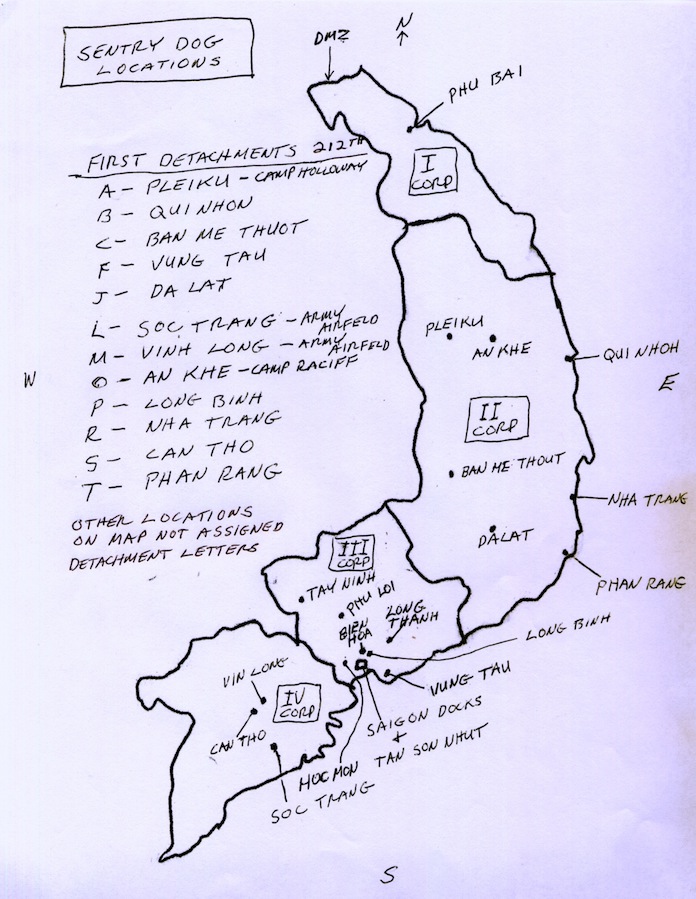 SENTRY DOG
LOCATIONS
DMZ
N
PHU BAI
FIRST DETACHMENTS 212TH
A- PLEIKU - CAMP HOLLOWAY
B- QUI NHON
C- BAN ME THUOT
F- VUNG TAU
J- DA LAT
L- SOC TRANG - ARMY AIRFELD
M- VINH LONG - ARMY AIRFELD
O- AN KHE - CAMP RACIFF
P- LONG BINH
R- NHA TRANG
S- CAN THO
T- PHAN RANG
OTHER LOCATIONS
ON MAP NOT ASSIGNED
DETACHMENT LETTERS
I
CORP
PLEIKU
AN KHE
QUI NHOH
W
E
II
CORP
BAN ME THOUT
NHA TRANG
DALAT
PHAN RANG
III
CORP
TAY NINH
PHU LOI
BIEN
HOA
LONG
THANH
LONG BINH
VUNG TAU
SAIGON DOCKS
+
TAN SON NHUT
HOC MON
VIN LONG
IV
CORP
CAN THO
SOC TRANG
S